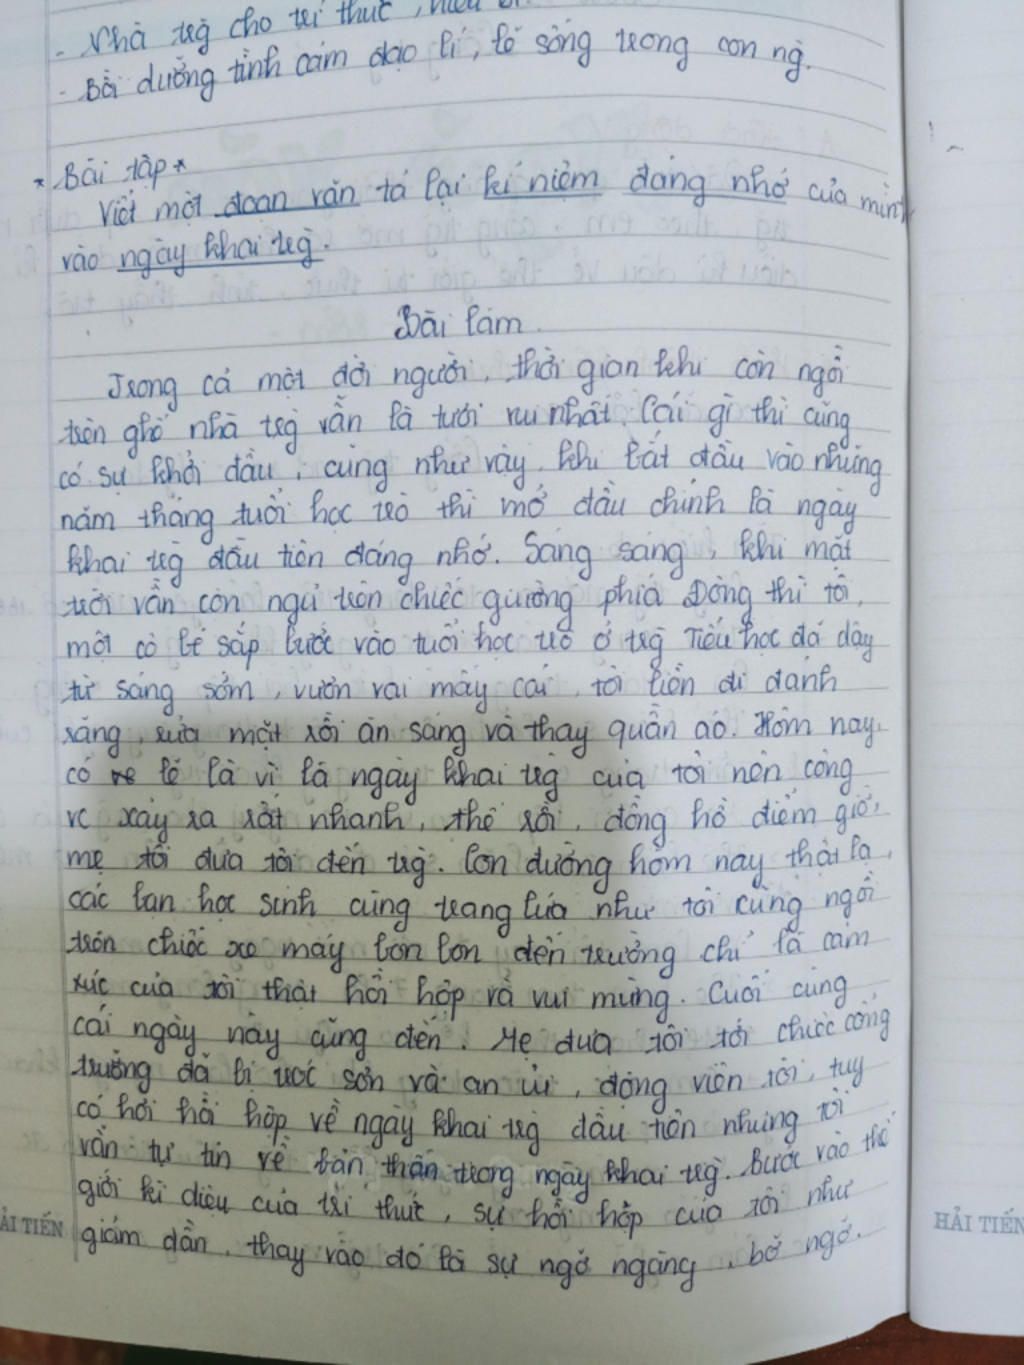 - Nhà trg cho tri thức, hiểu
- Bồi dưỡng tình cảm đạo lí, lẽ sống trong con ng.
* Bài tập *
Viết một đoạn văn tả lại kỉ niệm đáng nhớ của mình
vào ngày khai trg.
Bài làm
Trong cả một đời người, thời gian khi còn ngồi
trên ghế nhà trg vẫn là tươi vui nhất. Cái gì thì cũng
có sự khởi đầu, cũng như vậy, khi bắt đầu vào những
năm tháng tuổi học trò thì mở đầu chính là ngày
khai trg đầu tiên đáng nhớ. Sáng sáng, khi mặt
trời vẫn còn ngủ trên chiếc giường phía Đông thì tôi,
một cô bé sắp bước vào tuổi học trò ở trg Tiểu học đã dậy
từ sáng sớm, vươn vai mấy cái, tôi liền đi đánh
răng rửa mặt rồi ăn sáng và thay quần áo. Hôm nay,
có lẽ là vì là ngày khai trg của tôi nên công
vc xảy ra rất nhanh, thế rồi, đồng hồ điểm giờ,
mẹ tôi đưa tôi đến trg. Con đường hôm nay thật lạ,
các bạn học sinh cũng trang lứa như tôi cũng ngồi
trên chiếc xe máy bon bon đến trường chỉ là cảm
xúc của tôi thật hồi hộp và vui mừng. Cuối cùng
cái ngày này cũng đến. Mẹ đưa tôi tới chiếc cổng
trường đã bị tróc sơn và an ủi, động viên tôi, tuy
có hơi hồi hộp về ngày khai trg đầu tiên nhưng tôi
vẫn tự tin về bản thân trong ngày khai trg. Bước vào thế
giới kì diệu của tri thức, sự hồi hộp của tôi như
giảm dần, thay vào đó là sự ngỡ ngàng, bỡ ngỡ.
ẢI TIẾN
HẢI TIẾN